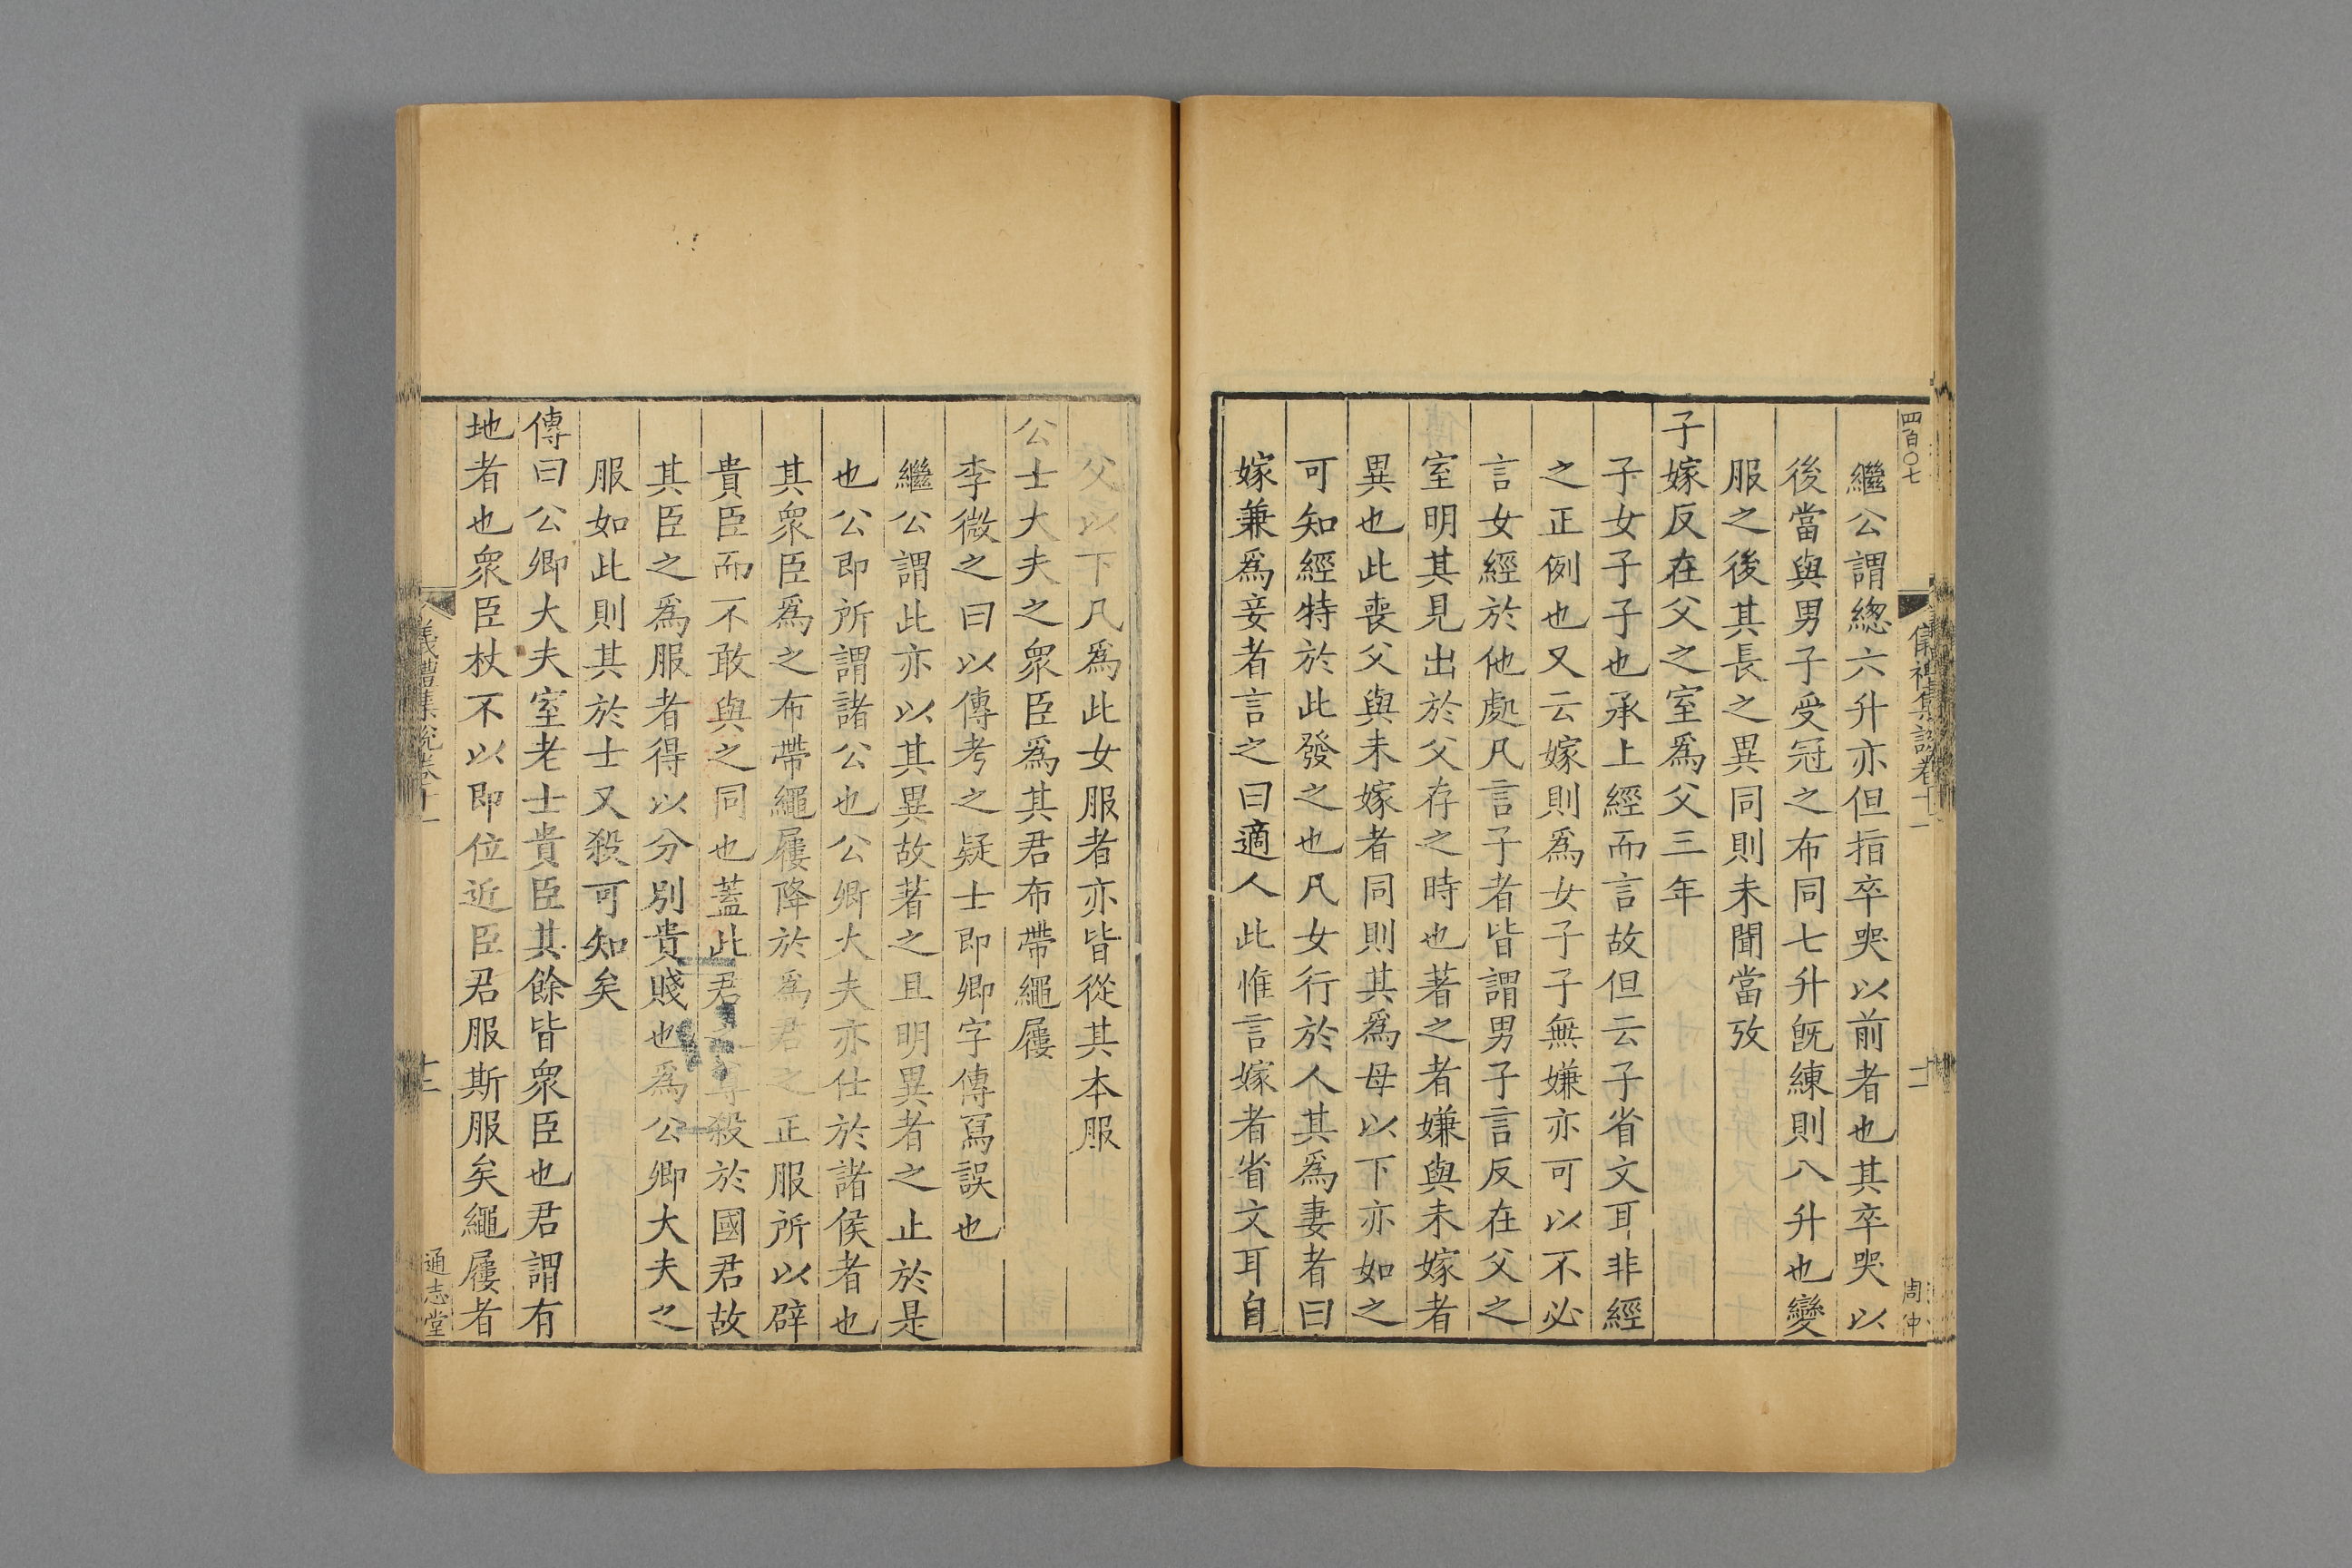 四百〇七
儀禮集說卷十一
十二
周仲
繼公謂緦六升亦但指卒哭以前者也其卒哭以
後當與男子受冠之布同七升旣練則八升也變
服之後其長之異同則未聞當攷
子嫁反在父之室爲父三年
子女子子也承上經而言故但云子省文耳非經
之正例也又云嫁則爲女子子無嫌亦可以不必
言女經於他處凡言子者皆謂男子言反在父之
室明其見出於父存之時也著之者嫌與未嫁者
異也此喪父與未嫁者同則其爲母以下亦如之
可知經特於此發之也凡女行於人其爲妻者曰
嫁兼爲妾者言之曰適人此惟言嫁者省文耳自
父以下凡爲此女服者亦皆從其本服
公士大夫之衆臣爲其君布帶繩屨
李微之曰以傳考之疑士即卿字傳寫誤也
繼公謂此亦以其異故著之且明異者之止於是
也公即所謂諸公也公卿大夫亦仕於諸侯者也
其衆臣爲之布帶繩屨降於爲君之正服所以辟
貴臣而不敢與之同也蓋此君之尊殺於國君故
其臣之爲服者得以分別貴賤也爲公卿大夫之
服如此則其於士又殺可知矣
傳曰公卿大夫室老士貴臣其餘皆衆臣也君謂有
地者也衆臣杖不以即位近臣君服斯服矣繩屨者
儀禮集說卷十一
十二
通志堂